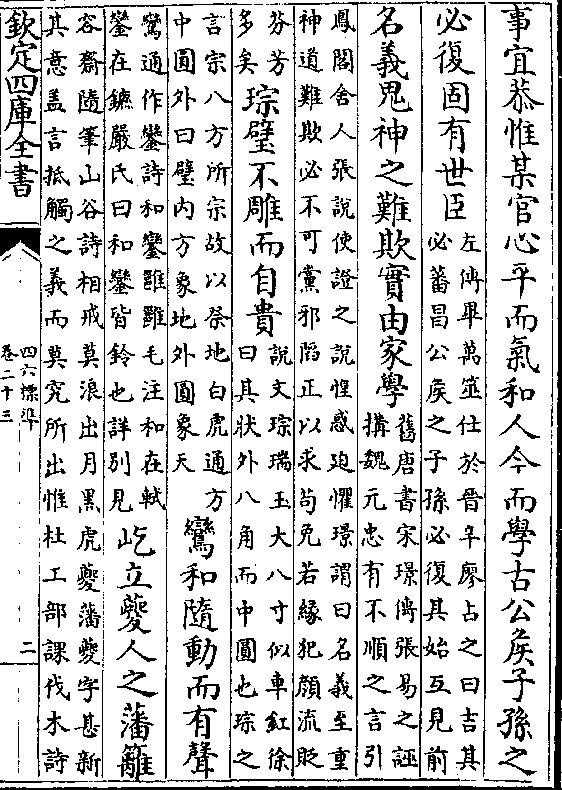 事宜恭惟某官心平而氣和人今而學古公侯子孫之
必復固有世臣
左傳畢萬筮仕於晉辛廖占之曰吉其
必蕃昌公侯之子孫必復其始互見前
名義鬼神之難欺實由家學
舊唐書宋璟傳張易之誣
搆魏元忠有不順之言引
鳳閣舍人張說使證之說惶惑迫懼璟謂曰名義至重
神道難欺必不可黨邪陷正以求苟免若緣犯顔流貶
芬芳
多矣
琮璧不雕而自貴
說文琮瑞玉大八寸似車紅徐
曰其狀外八角而中圓也琮之
言宗八方所宗故以祭地白虎通方
中圓外曰璧内方象地外圓象天
鸞和隨動而有聲
鸞通作鑾詩和鑾雝雝毛注和在軾
鑾在鑣嚴氏曰和鑾皆鈴也詳別見
屹立夔人之藩籬
容齋隨筆山谷詩相戒莫浪出月黑虎夔藩夔字甚新
其意盖言抵觸之義而莫究所出惟杜工部課伐木詩
欽定四庫全書
四六標準
卷二十三
二